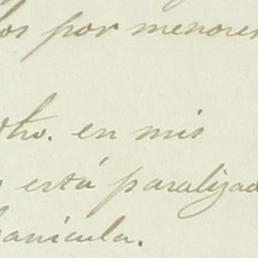 los por menores
otro. en mis
está paralizad
canícula.